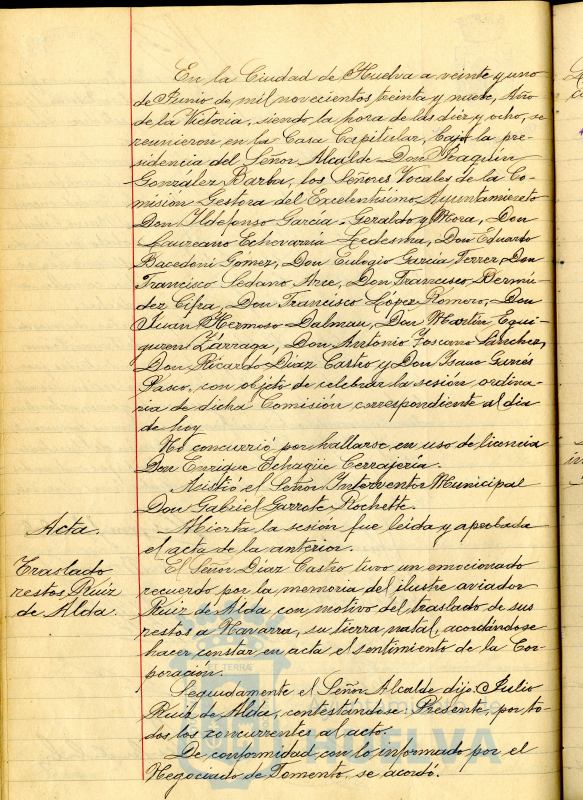 En la Ciudad de Huelva a veinte y uno
de Junio de mil novecientos treinta y nueve, Año
de la Victoria, siendo la hora de las diez y ocho, se
reunieron en la Casa Capitular, bajo la pre-
sidencia del Señor Alcalde Don Joaquín
González Barba, los Señores Vocales de la Co-
misión Gestora del Excelentísimo Ayuntamiento
Don Ildefonso García-Geraldo y Mora, Don
Laureano Echevarría Ledesma, Don Eduardo
Bacedoni Gómez, Don Eulogio García Ferrer, Don
Francisco Sedano Arce, Don Francisco Bermú-
dez Cifra, Don Francisco López Romero, Don
Juan Hermoso Dalmau, Don Martín Egui-
guren Zárraga, Don Antonio Toscano Sánchez,
Don Ricardo Díaz Castro y Don Isaac Garcés
Pasco, con objeto de celebrar la sesión ordina-
ria de dicha Comisión correspondiente al día
de hoy
No concurrió por hallarse en uso de licencia
Don Enrique Echagüe Cerrajería.
Asistió el Señor Interventor Municipal
Don Gabriel Garrote Rochette.
Acta.
Abierta la sesión fue leída y aprobada
el acta de la anterior.
Traslado
restos Ruiz
de Alda.
El Señor Díaz Castro tuvo un emocionado
recuerdo por la memoria del ilustre aviador
Ruiz de Alda, con motivo del traslado de sus
restos a Navarra, su tierra natal, acordándose
hacer constar en acta el sentimiento de la Cor-
poración.
Seguidamente el Señor Alcalde dijo: Julio
Ruiz de Alda, contestándose: Presente, por to-
dos los concurrentes al acto.
De conformidad con lo informado por el
Negociado de Fomento, se acordó.
ET TERRÆ
HUELVA